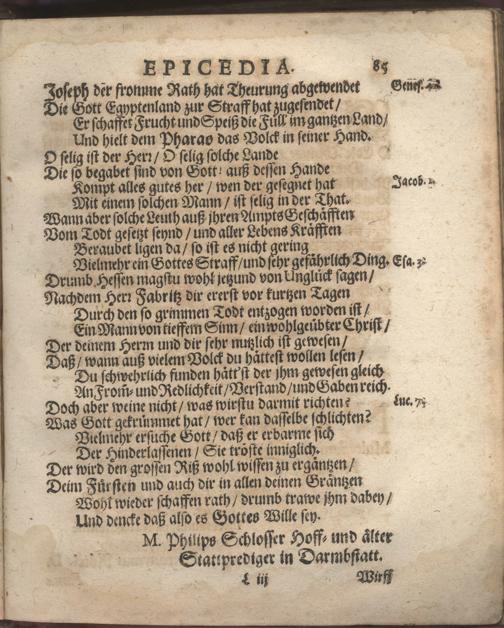 EPICEDIA. 85
Joseph der fromme Rath hat Theurung abgewendet Genes.
Die Gott Egyptenland zur Straff hat zugesendet /
Er schaffet Frucht und Speiß die Füll im gantzen Land /
Und hielt dem Pharao das Volck in seiner Hand.
O selig ist der Herr / O selig solche Lande
Die so begabet sind von Gott: auß dessen Hande
Kompt alles gutes her / wen der gesegnet hat Jacob.
Mit einem solchen Mann / ist selig in der That.
Wann aber solche Leuth auß jhren Ampts Geschäfften
Vom Todt gesetzt seynd / und aller Lebens Kräfften
Beraubet ligen da / so ist es nicht gering
Vielmehr ein Gottes Straff / und sehr gefährlich Ding. Esa. 3.
Drumb Hessen magstu wohl jetzund von Unglück sagen /
Nachdem Herr Fabritz dir ererst vor kurtzen Tagen
Durch den so grimmen Todt entzogen worden ist /
Ein Mann von tieffem Sinn / ein wohlgeübter Christ /
Der deinem Herrn und dir sehr nutzlich ist gewesen /
Daß / wann auß vielem Volck du hättest wollen lesen /
Du schwehrlich funden hätt'st der jhm gewesen gleich
An From̃- und Redlichkeit / Verstand / und Gaben reich.
Doch aber weine nicht / was wirstu darmit richten? Luc. 7.
Was Gott gekrümmet hat / wer kan dasselbe schlichten?
Vielmehr ersuche Gott / daß er erbarme sich
Der Hinderlassenen / Sie tröste inniglich.
Der wird den grossen Riß wohl wissen zu ergäntzen /
Deim Fürsten und auch dir in allen deinen Gräntzen
Wohl wieder schaffen rath / drumb trawe jhm dabey /
Und dencke daß also es Gottes Wille sey.
M. Philips Schlosser Hoff- und älter
Stattprediger in Darmbstatt.
L iij Wirff